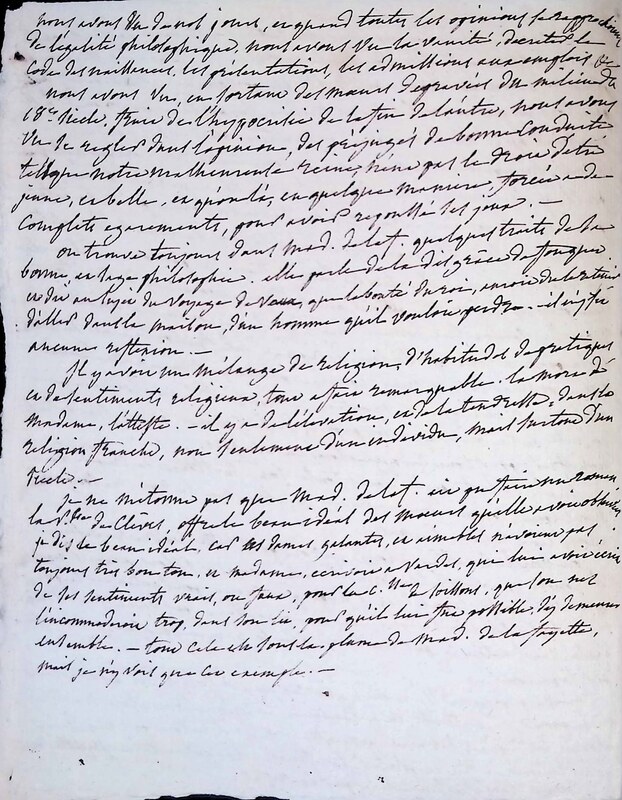 nous avons vu de nos jours, et quand toutes les opinions se rapprochoient
de l'égalité philosophique, nous avons vu la vanité, decreter le
Code des naissances, les présentations, les admissions aux emplois &c
nous avons vu, en sortant des mœurs degravées du milieu du
18e siecle, suivie de l'hypocrisie de la fin de l'autre, nous avons
vu se regler dans l'opinion, des préjugés de bonne conduite
tels que notre malheureuse reine, n'eut pas le droit d'etre
jeune, et belle, et qu'on l'a, en quelque maniere, forcée a de
complets egarements, pour avoir repoussé ses jeux. —
on trouve toujours dans Mad. de laf. quelques traits de la
bonne et sage philosophie. elle parle de la disgrace de fouquet
et dit au sujet du voyage de Vaux, que la bonté du roi, auroit du le retenir
d'aller dans la maison, d'un homme qu'il vouloit perdre. — il n'y fit
aucune reflexion. —
Il y avoit un mélange de religion, d'habitudes de pratiques
et de sentiments religieux, tout a fait remarquable. la mort de
Madame, l'atteste. — il y a de l'élevation, et de la tendresse, dans la
religion franche, non seulement d'un individu, mais surtout d'un
siecle. —
je ne m'étonne pas que Mad. de laf. ait pu faire un roman
la Psse de Clèves, offre le beau idéal des mœurs qu'elle avoit observées
je dis le beau idéal, car les dames galantes, et aimables n'avoient pas
toujours très bon ton, et madame, ecrivoit a Vardes, qui lui avoit écrit
de ses sentiments vrais, ou faux, pour la Csse de soissons, que son nez
l'incommodroit trop, dans son lit, pour qu'il lui fut possible, d'y demeurer
ensemble. — tout cela est sous la plume de Mad. de la fayette,
mais je n'y vois que cet exemple. —